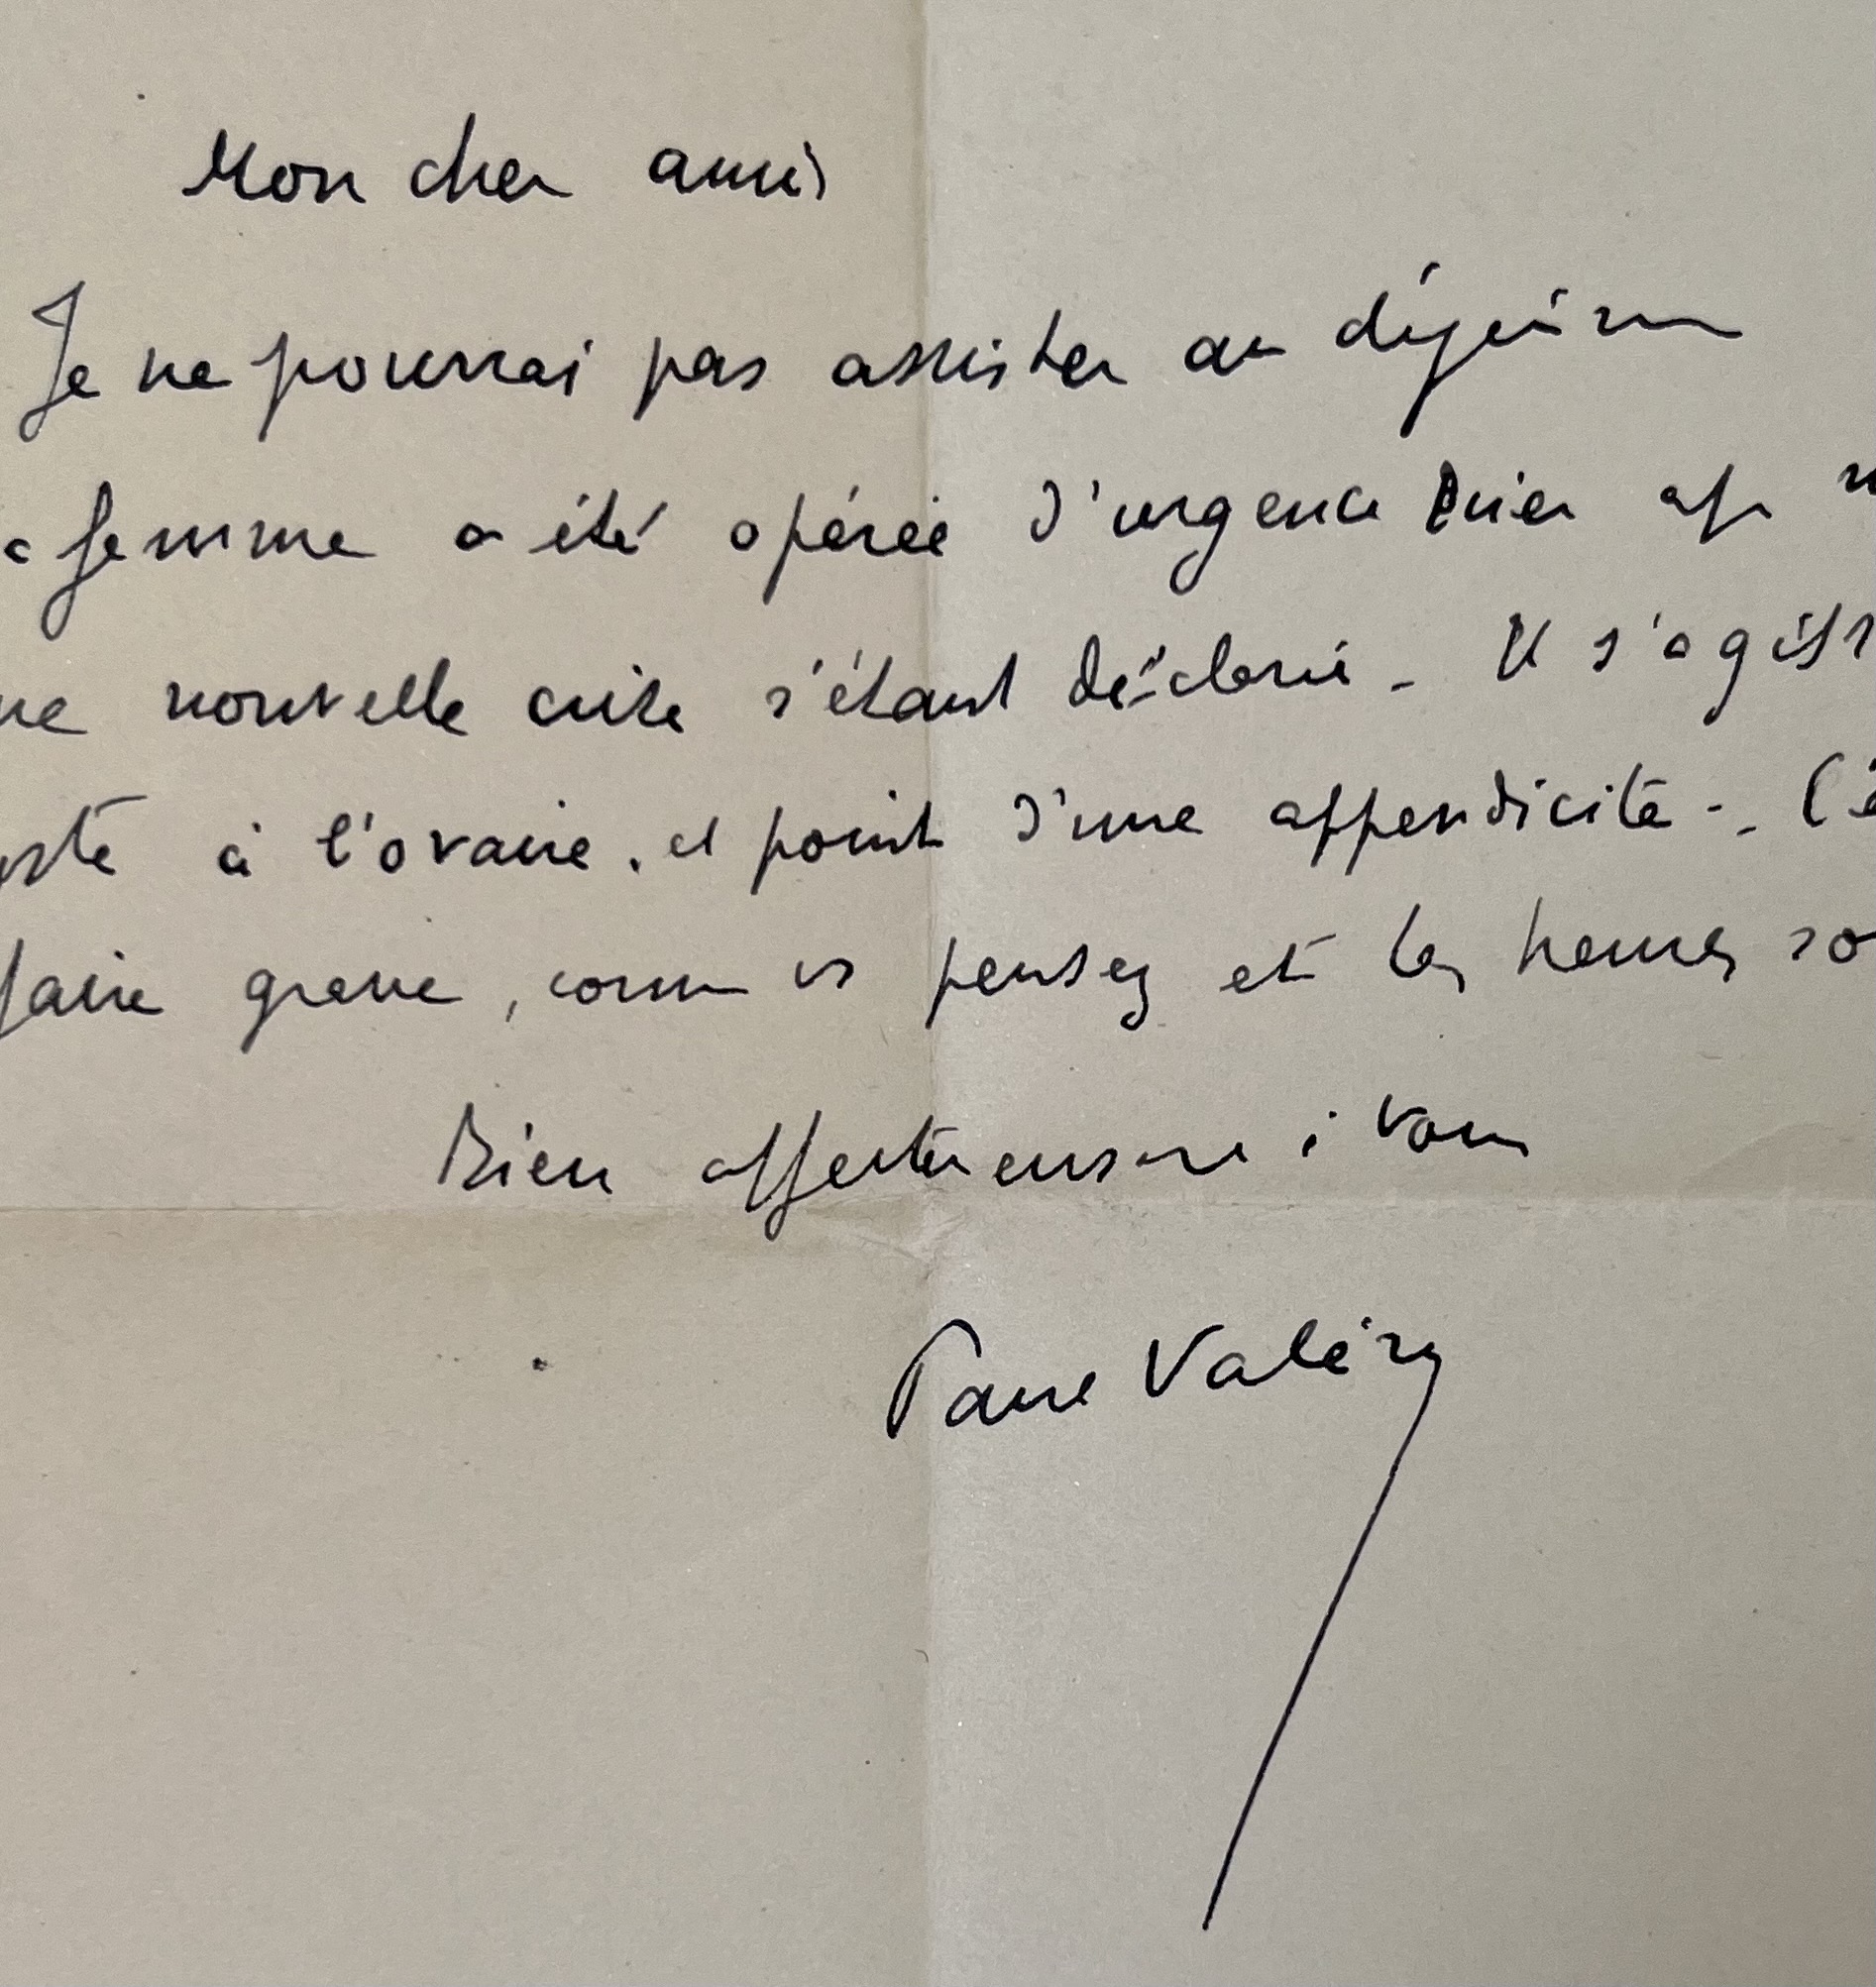 Mon cher ami
Je ne pourrai pas assister au déjeuner
femme a été opérée d'urgence hier ap
ne nouvelle crise s'étant déclarée - Il s'agiss
à l'ovaire. et point d'une appendicite -. C'é
faire grave, comme vs pensez et les heures so
Bien affectueusement à vous
Paul Valéry